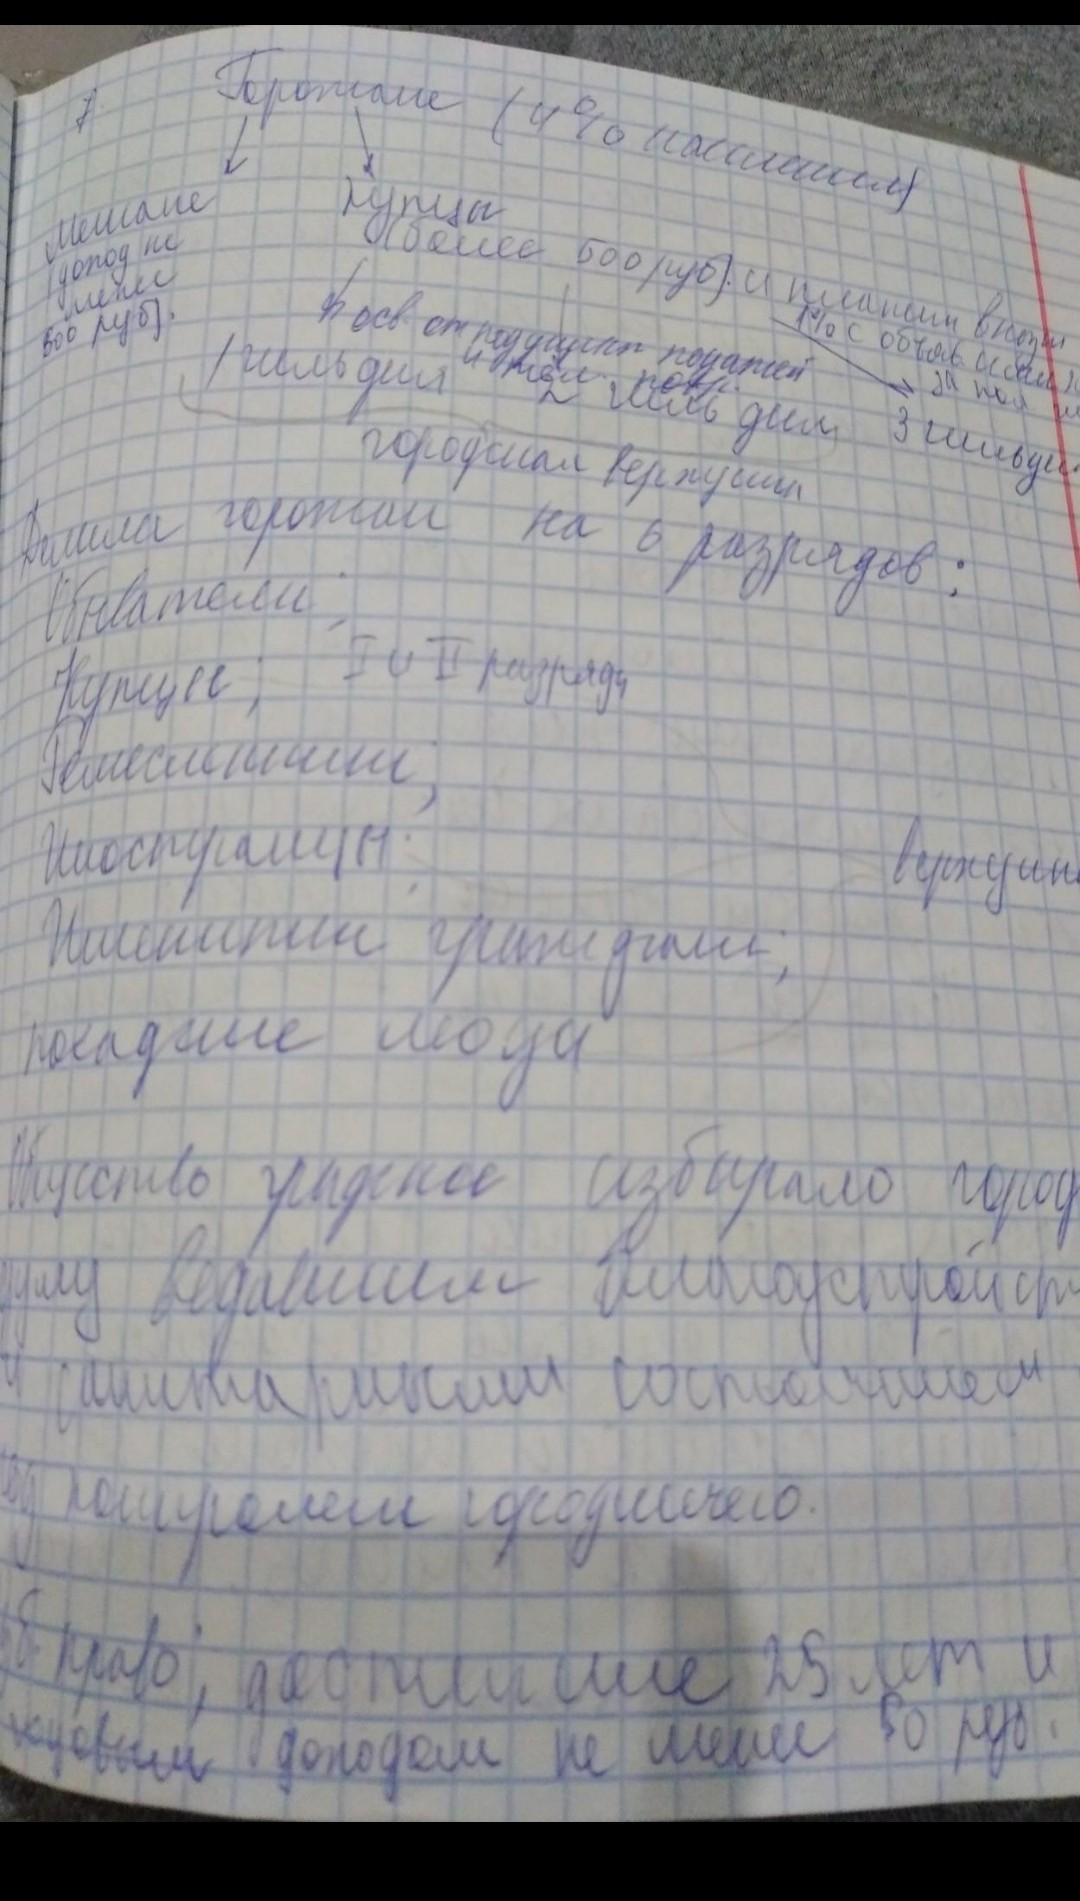 7. Горожане (4% населения)
Мещане
(доход не
менее
500 руб).
Купцы
(более 500 руб). и платили в казну
1% с объяв
осв. от подушной подати
и
1 гильдия 2 гильдия 3 гильдия
городская верхушка
Делила горожан на 6 разрядов:
Обыватели;
Купцы; I и II разряда
Ремесленники;
Иностранцы;
верхушка
Именитые граждане;
посадские люди
Общество градское избирало город
думу ведавшим благоустройст
и санитарным состоянием
под контролем городничего.
право, достигшие 25 лет и
годовым доходом не менее 50 руб.